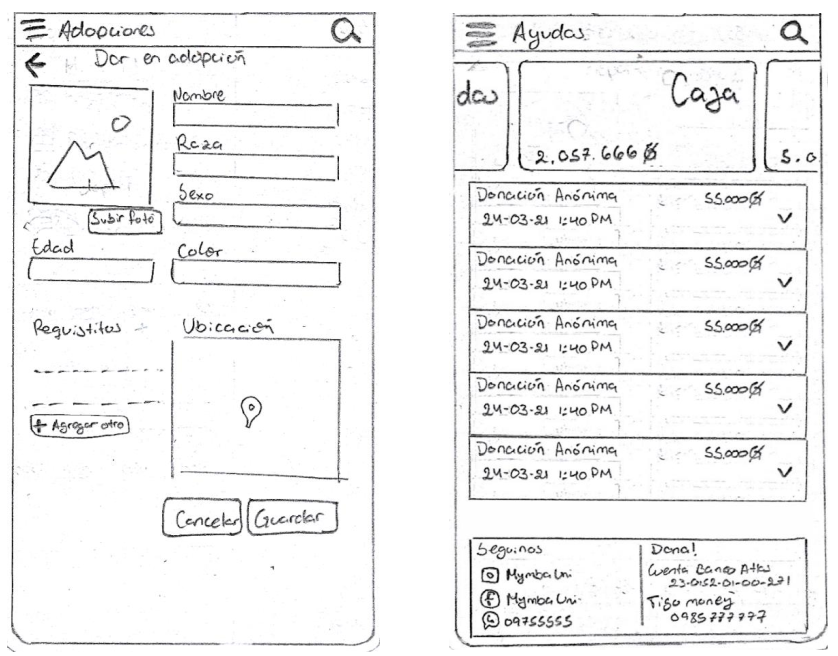 Adopciones
Dar en adopción
Nombre
Raza
Sexo
Subir foto
Edad
Color
Requistitos
Ubicación
+ Agregar otro
Cancelar
Guardar
Ayudas
das
Caja
2.057.666 ₲
5.0
Donación Anónima 55.000₲
24-03-21 1:40 PM
Donación Anónima 55.000₲
24-03-21 1:40 PM
Donación Anónima 55.000₲
24-03-21 1:40 PM
Donación Anónima 55.000₲
24-03-21 1:40 PM
Donación Anónima 55.000₲
24-03-21 1:40 PM
Seguinos
Mymba Uni
Mymba Uni
09755555
Dona!
Cuenta Banco Atlas
23-0152-01-00-271
Tigo money
0985777777